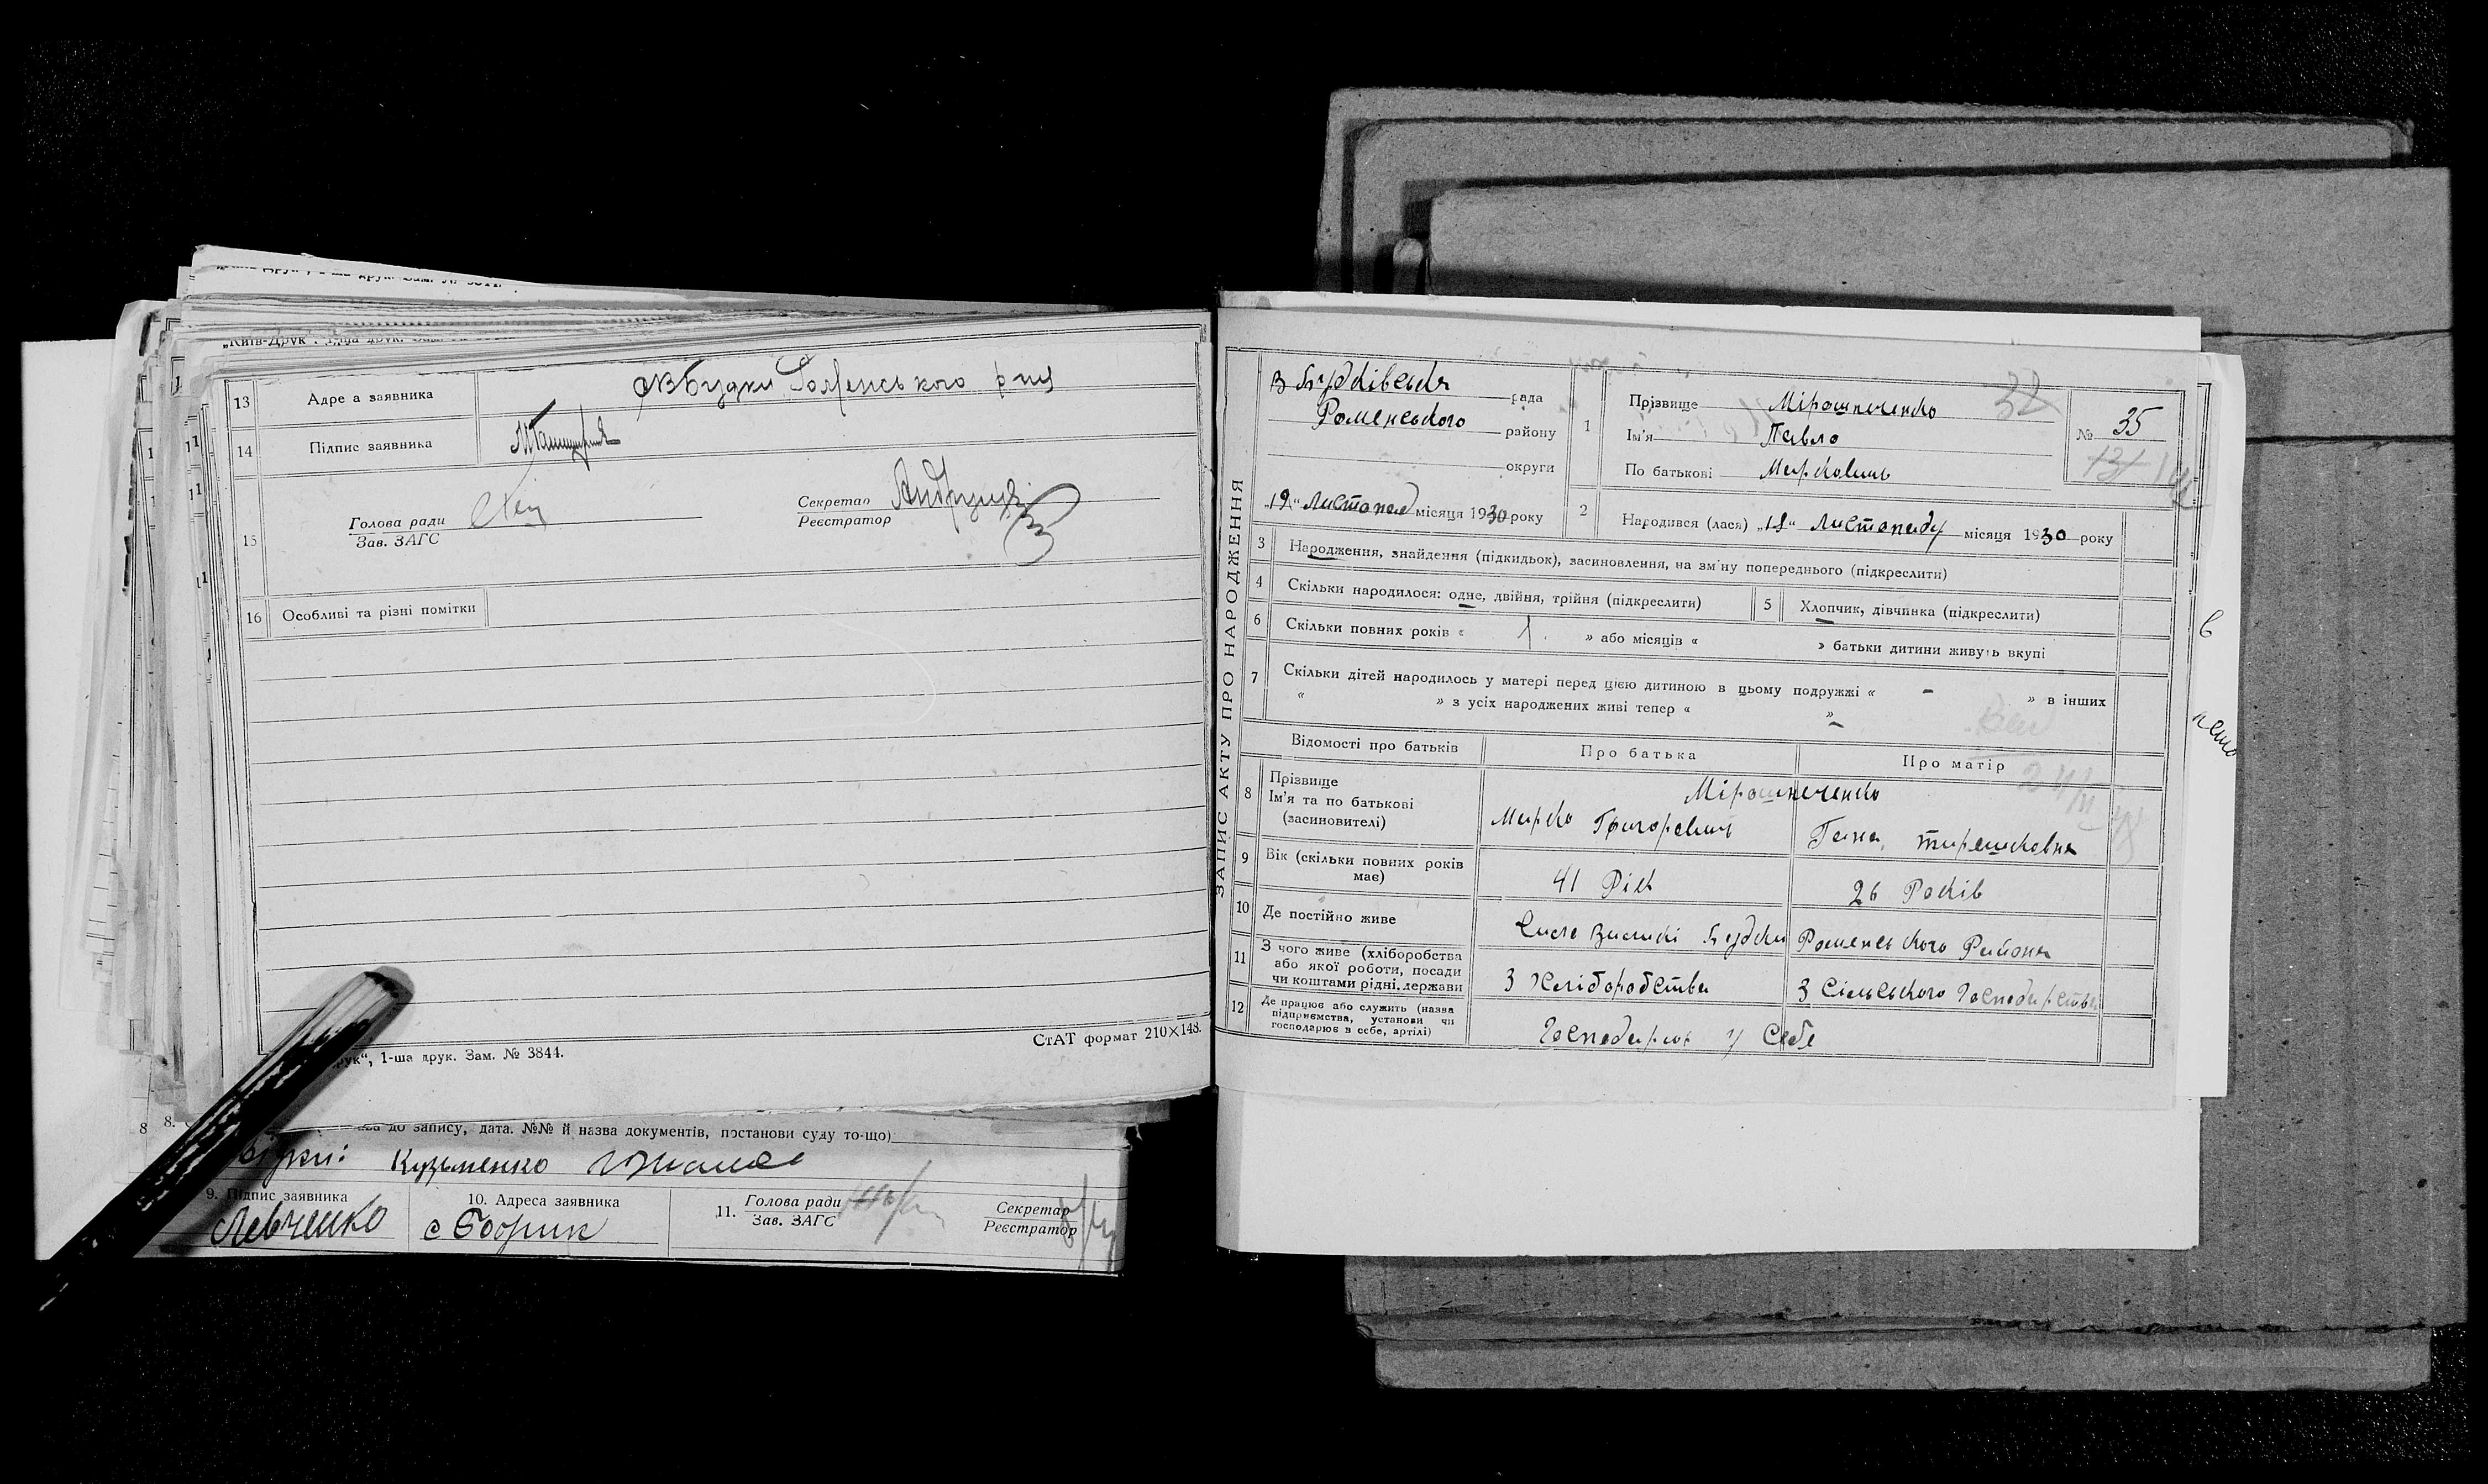 „Київ-Друк". 1-ша друк. Зам.
13 Адре а заявника с В Бубки Роменського р ну
14 Підпис заявника
15 Голова ради
Зав. ЗАГС
Секретар
Реєстратор
16 Особливі та різні помітки
СтАТ формат 210×148.
рук“, 1-ша друк. Зам. № 3844.
до запису, дата. №№ й назва документів, постанови суду то-що)
Кузьменко
9. Підпис заявника Левченко
10. Адреса заявника с Бобрик
11. Голова ради
Зав. ЗАГС
Секретар
Реєстратор
ЗАПИС АКТУ ПРО НАРОДЖЕННЯ
рада
Роменського району
округи
„19“ Листопад місяця 1930 року
1 Прізвище Мірошниченко
Ім'я Павло
По батькові Маркович
32
№ 35
131
2 Народився (лася) „18“ Листопаду місяця 1930 року
3 Народження, знайдення (підкидьок), засиновлення, на зм'ну попереднього (підкреслити)
4 Скільки народилося: одне, двійня, трійня (підкреслити) 5 Хлопчик, дівчинка (підкреслити)
6 Скільки повних років « 1. » або місяців « » батьки дитини живуть вкупі
7 Скільки дітей народилось у матері перед цією дитиною в цьому подружжі « – » в інших
« » з усіх народжених живі тепер « – »
Відомості про батьків Про батька Про матір
8 Прізвище
Ім'я та по батькові
(засиновителі)
Мірошниченко
Марко Григорович Ганна
9 Вік (скільки повних років має) 41 Рік 26 Років
10 Де постійно живе Село Великі Бубки Роменського Району
11 З чого живе (хліборобства або якої роботи, посади чи коштами рідні, держави З Хліборобства З Сільського Господарства
12 Де працює або служить (назва підприємства, установи чи господарює в себе, артілі) Господарює у Себе